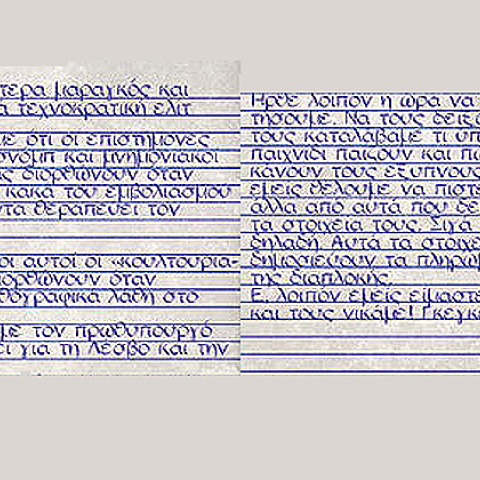 τερα μαραγκός και
ά τεχνοκρατική ελιτ
ε ότι οι επιστήμονες
σνόμπ και μνημονιακοί
ς διορθώνουν όταν
κακά του εμβολιασμού
ντα θεραπεύει τον
οι αυτοί οι «κουλτουρια-
ιορθώνουν όταν
θογραφικά λάθη στο
με τον πρωθυπουργό
ει για τη Λέσβο και την
Ήρθε λοιπόν η ώρα να
τήσουμε. Να τους δείξο
τους καταλάβαμε τι υπ
παιχνίδι παίζουν και πω
κάνουν τους εξυπνους
εμείς θέλουμε να πιστέ
άλλα από αυτά που δε
τα στοιχεία τους. Σιγά
δηλαδή. Αυτά τα στοιχε
δημοσιεύουν τα πληρωμ
της διαπλοκής.
Ε, λοιπόν εμείς είμαστε
και τους νικάμε! Γκεγκε